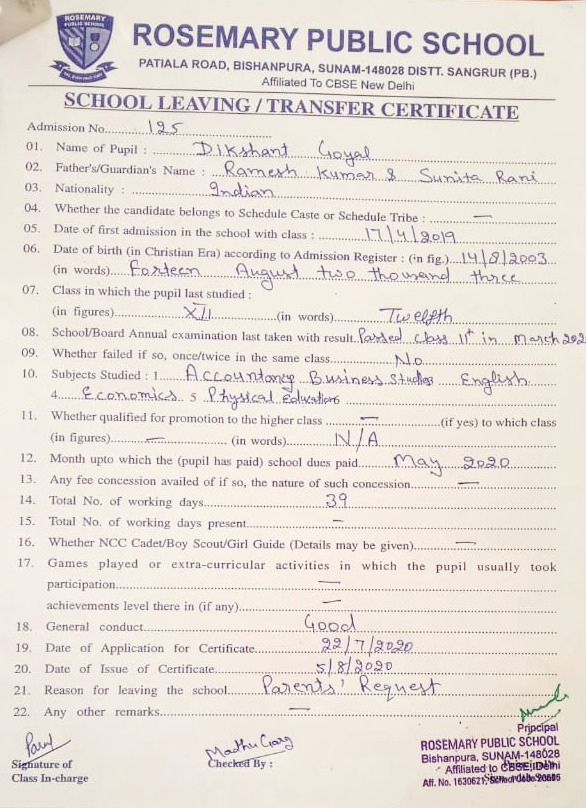 ROSEMARY
PUBLIC SCHOOL
ROSEMARY PUBLIC SCHOOL
PATIALA ROAD, BISHANPURA, SUNAM-148028 DISTT. SANGRUR (PB.)
Affiliated To CBSE New Delhi
SCHOOL LEAVING / TRANSFER CERTIFICATE
Admission No. 125
01. Name of Pupil : Dikshant Goyal
02. Father's/Guardian's Name : Ramesh Kumar & Sunita Rani
03. Nationality : Indian
04. Whether the candidate belongs to Schedule Caste or Schedule Tribe : —
05. Date of first admission in the school with class : 17/4/2019
06. Date of birth (in Christian Era) according to Admission Register : (in fig.) 14/8/2003
(in words) Forteen August two thousand three
07. Class in which the pupil last studied :
(in figures) XII (in words) Twelfth
08. School/Board Annual examination last taken with result Passed class 11th in March 202
09. Whether failed if so, once/twice in the same class No
10. Subjects Studied : 1 Accountancy Business Studies English
4 Economics 5 Physical Education
11. Whether qualified for promotion to the higher class — (if yes) to which class
(in figures) — (in words) N/A
12. Month upto which the (pupil has paid) school dues paid May 2020
13. Any fee concession availed of if so, the nature of such concession —
14. Total No. of working days 39
15. Total No. of working days present —
16. Whether NCC Cadet/Boy Scout/Girl Guide (Details may be given) —
17. Games played or extra-curricular activities in which the pupil usually took
participation —
achievements level there in (if any) —
18. General conduct Good
19. Date of Application for Certificate 22/7/2020
20. Date of Issue of Certificate 5/8/2020
21. Reason for leaving the school Parents' Request
22. Any other remarks —
Signature of
Class In-charge
Madhu Garg
Checked By :
Principal
ROSEMARY PUBLIC SCHOOL
Bishanpura, SUNAM-148028
Affiliated to CBSE, Delhi
Aff. No. 1630621, School Code 20605